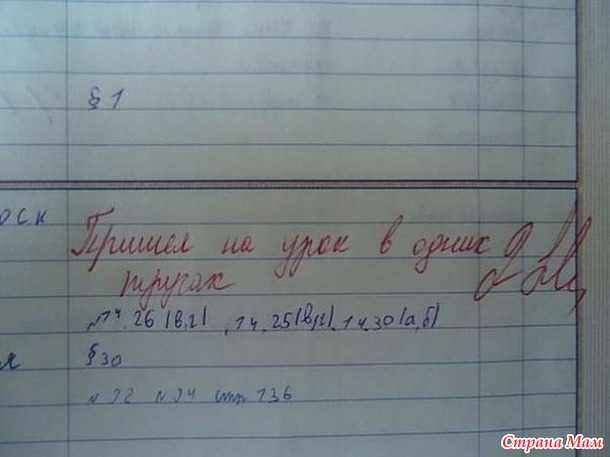 § 1
оск
Пришел на урок в одних
трусах 2
№14.26(в,г), 14.25(в,г), 14.30(а,б)
я § 30
№ 92 № 94 стр 136
Страна Мам